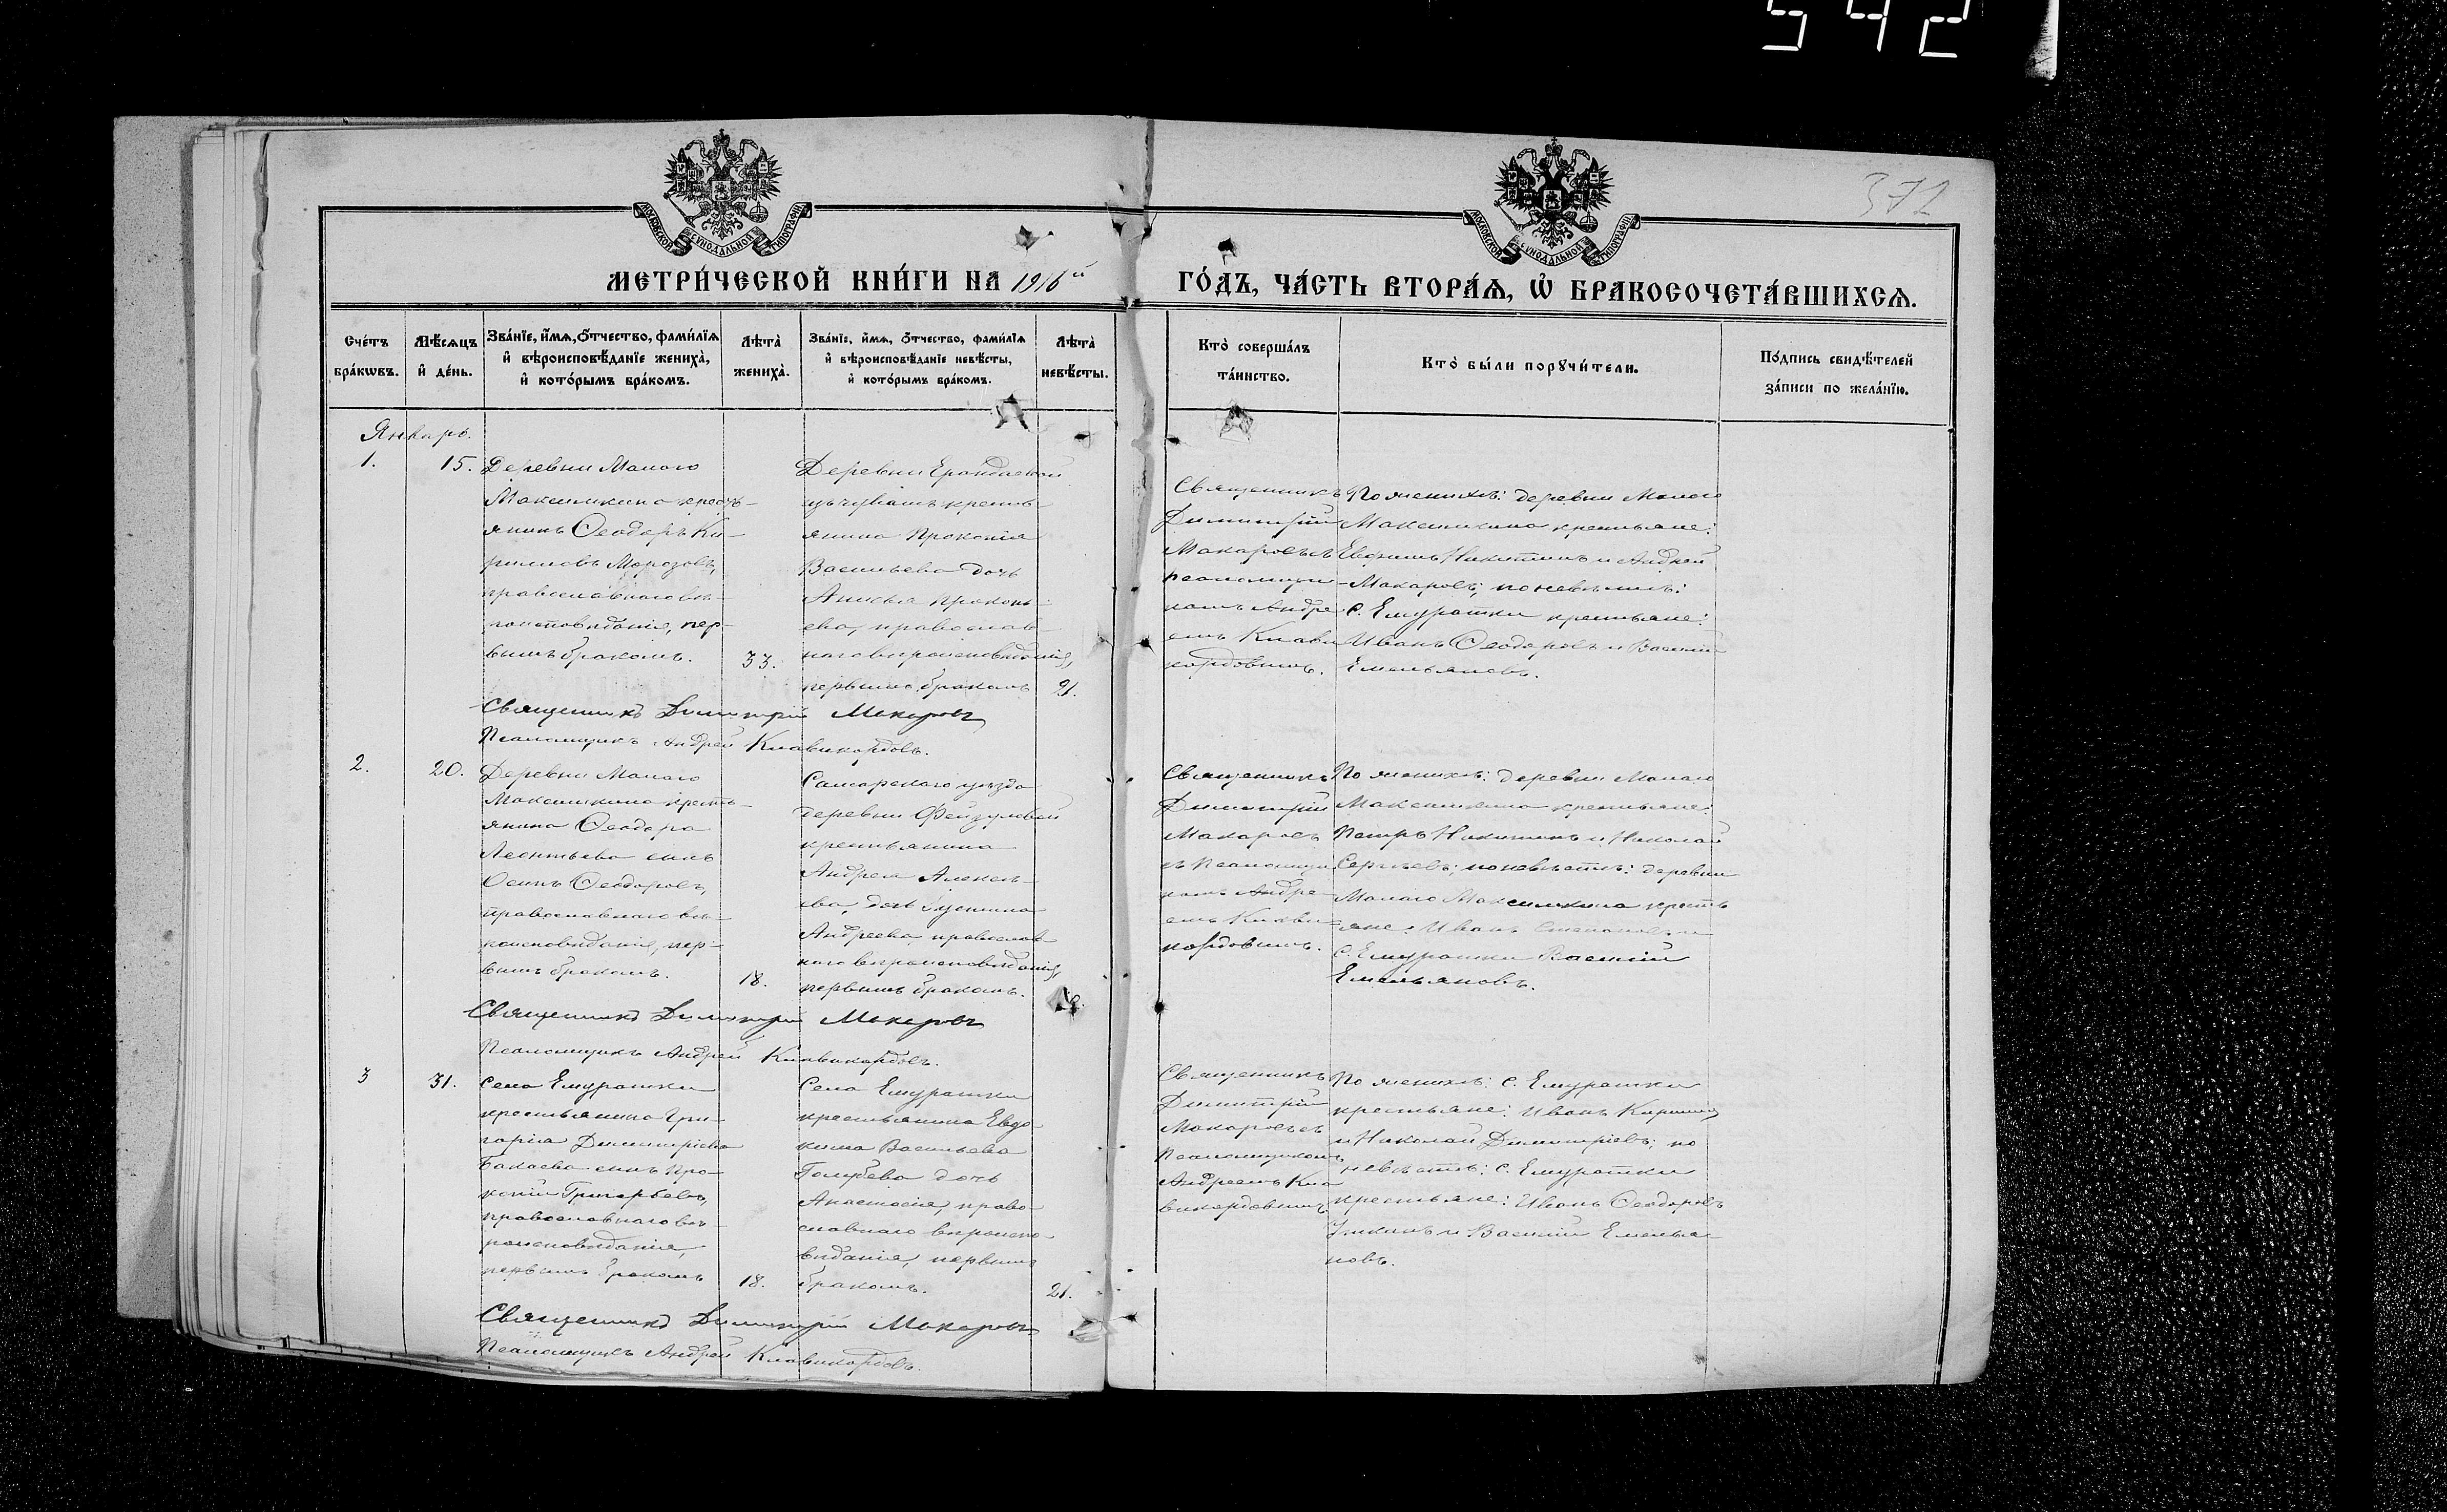 542
372
МОСКОВСКОЙ СѴНОДАЛЬНОЙ ТИПОГРАФІИ
МОСКОВСКОЙ СѴНОДАЛЬНОЙ ТИПОГРАФІИ
МЕТРИ́ЧЕСКОЙ КНИ́ГИ НА 1916й
ГО́ДЪ, ЧА́СТЬ ВТОРА́Ѧ, Ѡ҆ БРАКОСОЧЕТА́ВШИХСѦ.
Сче́тъ
бра́кѡвъ.
Мѣ́сѧцъ
и҆ де́нь.
Зва́нїе, и҆́мѧ, ѻ҆́тчество, фами́лїѧ
и҆ вѣроисповѣ́данїе жениха̀,
и҆ кото́рымъ бра́комъ.
Лѣ́та
жениха̀.
Зва́нїе, и҆́мѧ, ѻ҆́тчество, фами́лїѧ
и҆ вѣроисповѣ́данїе невѣ́сты,
и҆ кото́рымъ бра́комъ.
Лѣ́та
невѣ́сты.
Кто̀ соверша́лъ
та́инство.
Кто̀ бы́ли порꙋчи́тели.
По́дпись свидѣ́телей
за́писи по жела́нїю.
Январь.
1.
15.
Деревни Малаго
Максимкина кресть-
янинъ Ѳеодоръ Ки-
рилловъ Морозовъ,
православнаго вѣ-
роисповѣданія, пер-
вымъ бракомъ.
33.
Деревни
крестья-
янина Прокопія
Васильева дочь
Анисья Прокопь-
ева, православ-
наго вѣроисповѣданія,
первымъ бракомъ
21.
Священникъ
Димитрій
Макаровъ съ
псаломщи-
комъ Андре-
емъ Клави-
кордовымъ.
По женихѣ: деревни Малаго
Максимкина крестьяне:
Евфимъ Никитинъ и Андрей
Макаровъ; по невѣстѣ:
с. Емурашки крестьяне:
Иванъ Ѳеодоровъ и Василій
Емельяновъ.
Священникъ Димитрій Макаровъ
Псаломщикъ Андрей Клавикордовъ.
2.
20.
Деревни Малаго
Максимкина кресть-
янина Ѳеодора
Леонтьева сынъ
Осипъ Ѳеодоровъ,
православнаго вѣ-
роисповѣданія, пер-
вымъ бракомъ.
18.
Самарскаго уѣзда
деревни
крестьянина
Андрея Алексѣ-
ева, дочь Устинья
Андреева православ-
наго вѣроисповѣданія,
первымъ бракомъ.
Священникъ
Димитрій
Макаровъ
съ Псаломщи-
комъ Андре-
емъ Клави-
кордовымъ.
По женихѣ: деревни Малаго
Максимкина крестьяне:
Петръ Никитинъ и Николай
Сергѣевъ; по невѣстѣ: деревни
Малаго Максимкина кресть-
яне: Иванъ Степановъ и
с. Емурашки Василій
Емельяновъ.
Священникъ Димитрій Макаровъ
Псаломщикъ Андрей Клавикордовъ.
3
31.
Села Емурашки
крестьянина Гри-
горія Димитріева
Бакаева сынъ Про-
копій Григорьевъ,
православнаго вѣ-
роисповѣданія,
первымъ бракомъ
18.
Села Емурашки
крестьянина Евдо-
кима Васильева
Голубева дочь
Анастасія, право-
славнаго вѣроиспо-
вѣданія, первымъ
бракомъ.
21.
Священникъ
Димитрій
Макаровъ съ
Псаломщикомъ
Андреемъ Кла-
викордовымъ
По женихѣ: с. Емурашки
крестьяне: Иванъ Кирилловъ
и Николай Димитріевъ; по
невѣстѣ: с. Емурашки
крестьяне: Иванъ Ѳеодоровъ
и Василій Емелья-
новъ.
Священникъ Димитрій Макаровъ
Псаломщикъ Андрей Клавикордовъ.